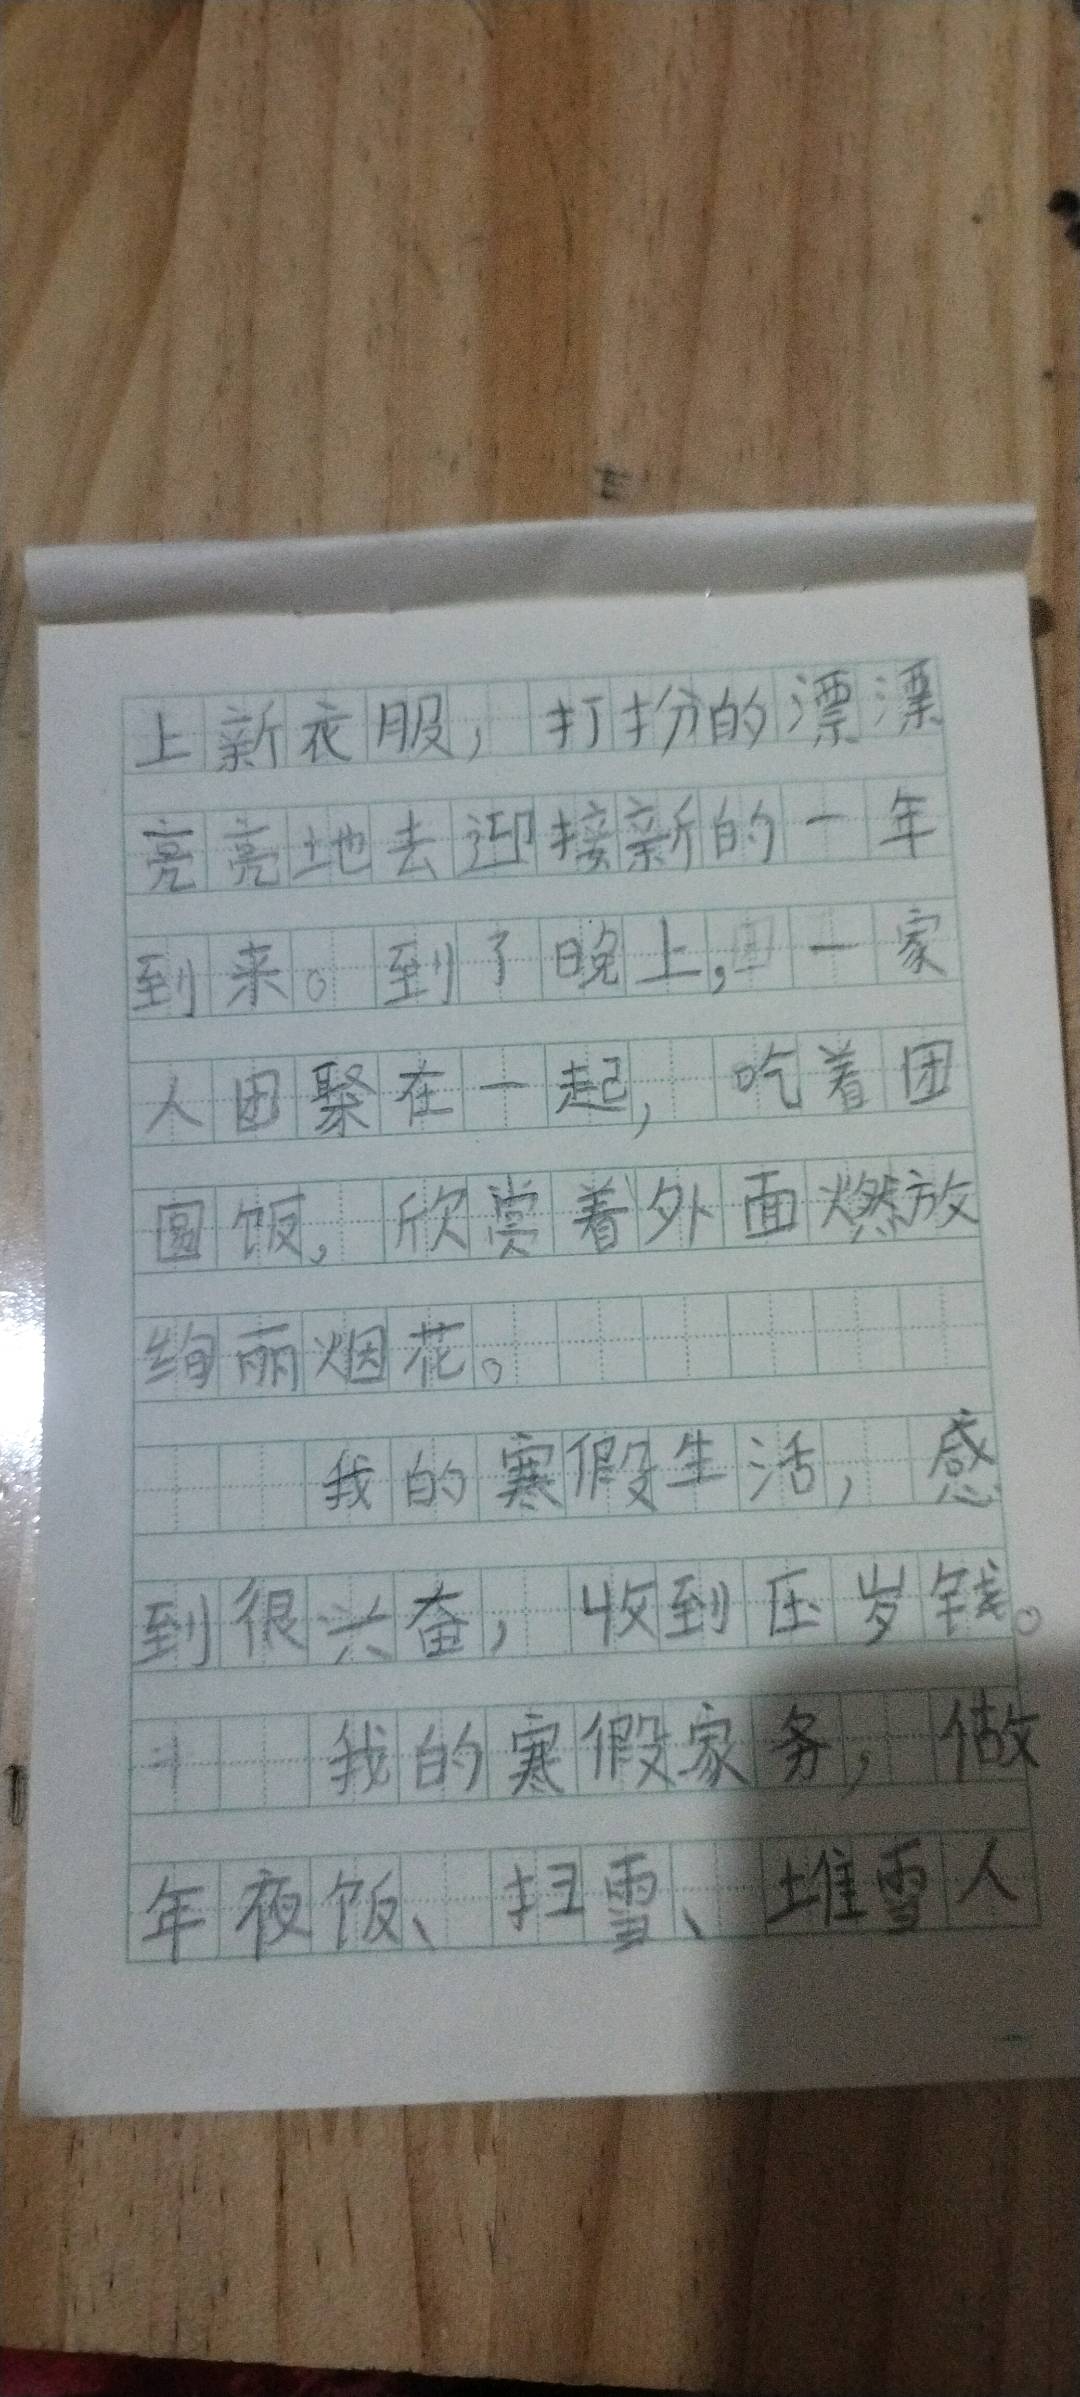 上新衣服，打扮的漂漂
亮亮地去迎接新的一年
到来。到了晚上，一家
人团聚在一起，吃着团
圆饭，欣赏着外面燃放
绚丽烟花。
我的寒假生活，感
到很兴奋，收到压岁钱。
我的寒假家务，做
年夜饭、扫雪、堆雪人